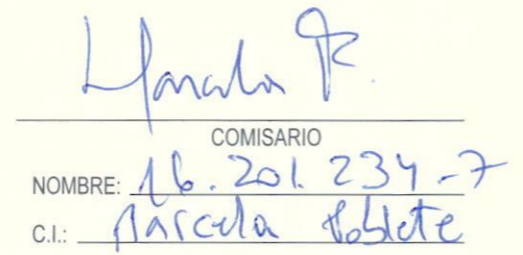 Marcela P.
COMISARIO
NOMBRE: 16.201.234-7
C.I.: Marcela Poblete